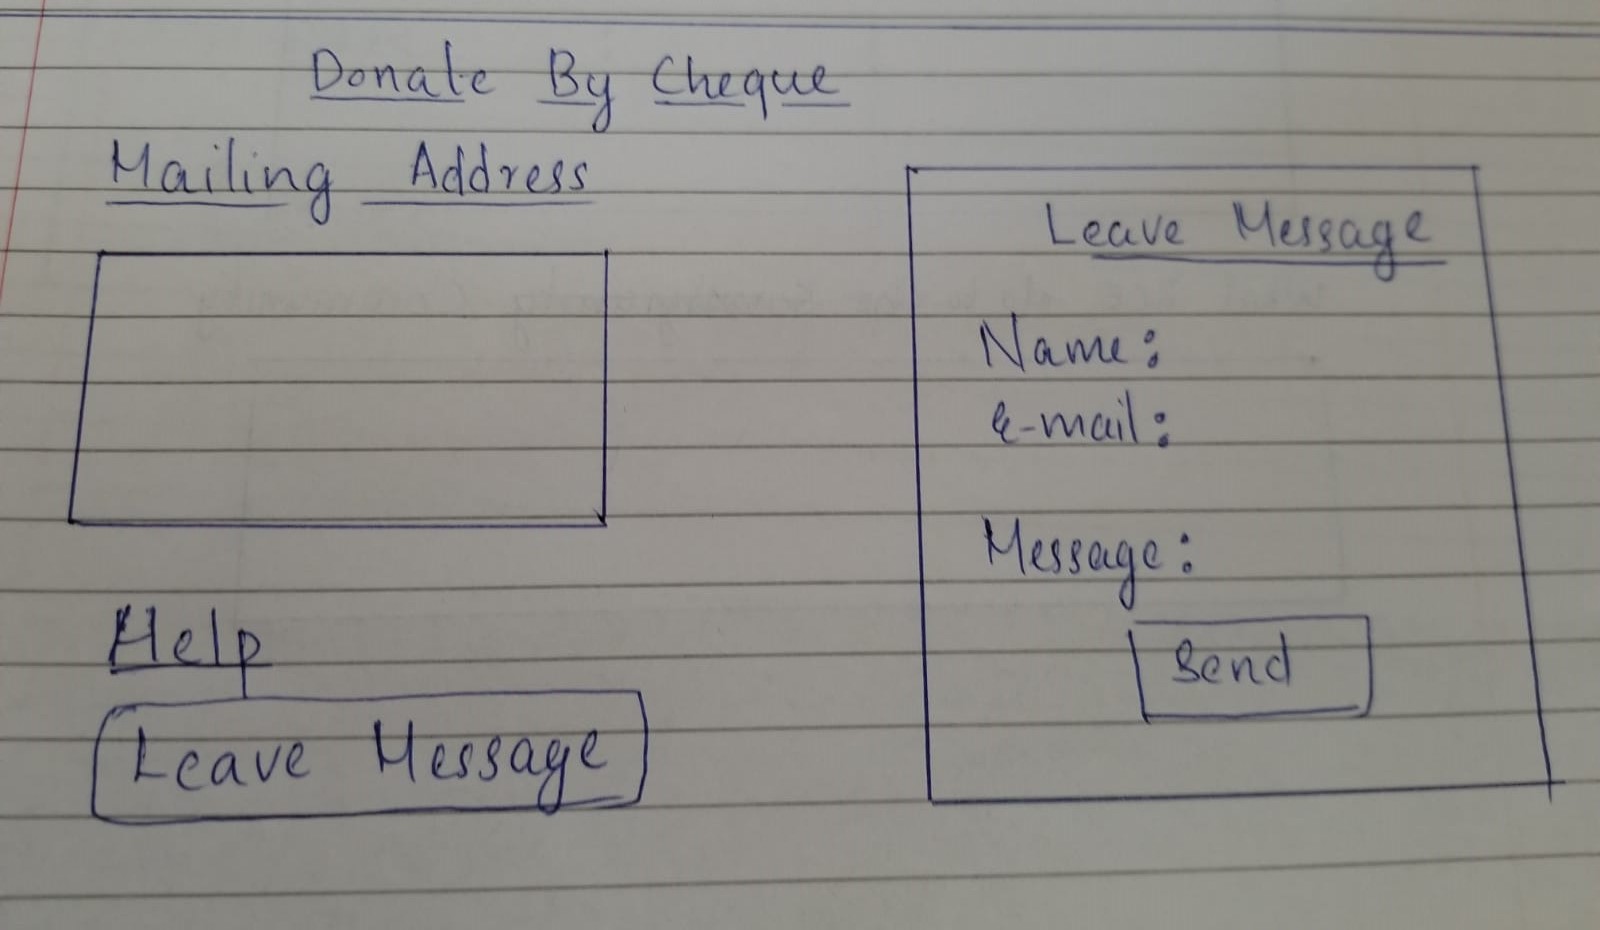 Donate By Cheque
Mailing Address
Help
Leave Message
Leave Message
Name:
e-mail:
Message:
Send